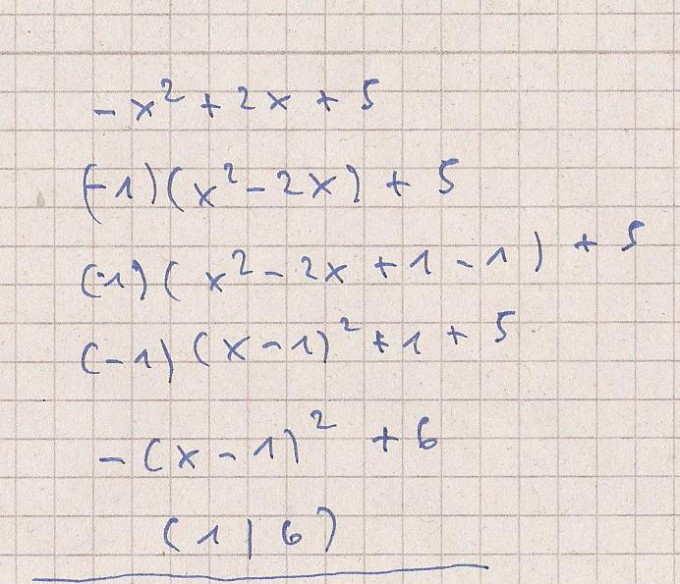 -x² + 2x + 5
(-1)(x² - 2x) + 5
(-1)(x² - 2x + 1 - 1) + 5
(-1)(x - 1)² + 1 + 5
-(x - 1)² + 6
(1 | 6)